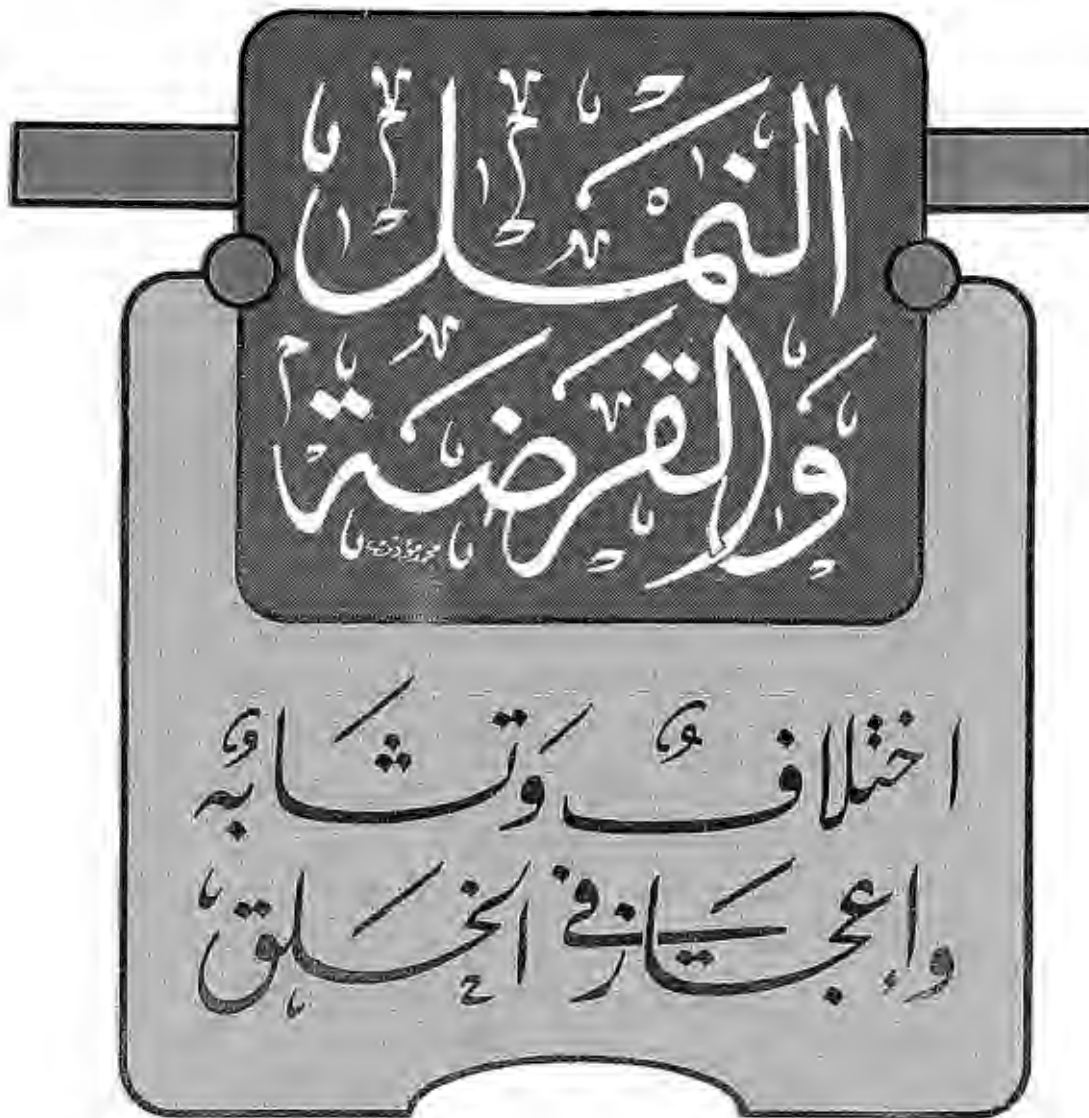 النمل
والقرضة
اختلافٌ وَتشَابُه
وإعجَاز في الخَلق